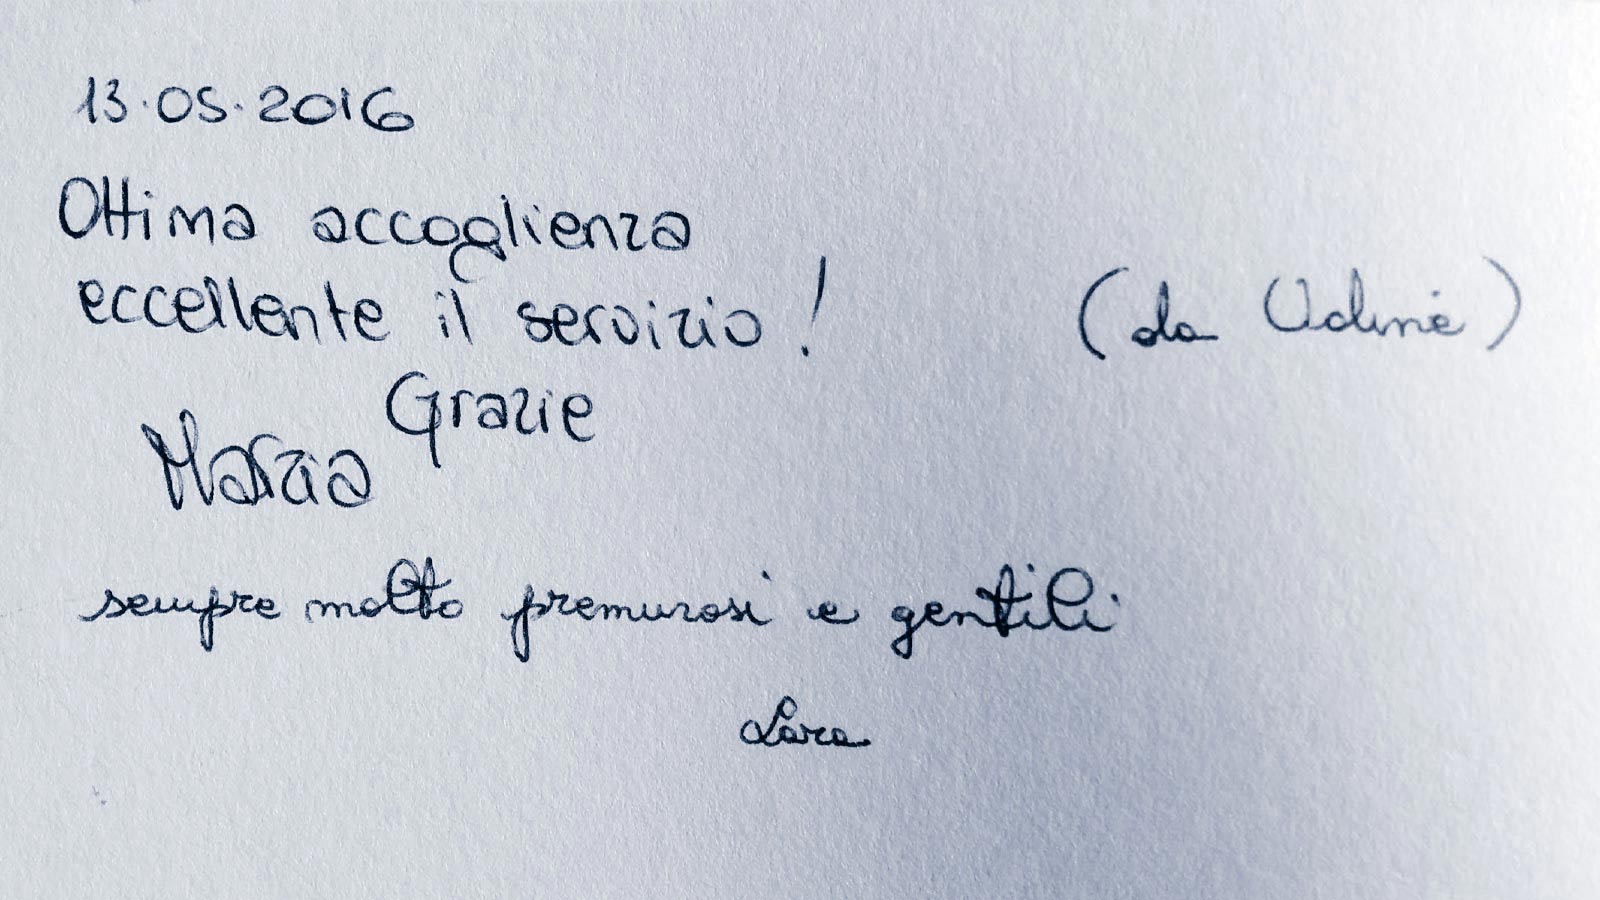 13.05.2016
Ottima accoglienza
eccellente il servizio!
(da Udine)
Grazie
Marzia
sempre molto premurosi e gentili
Lara